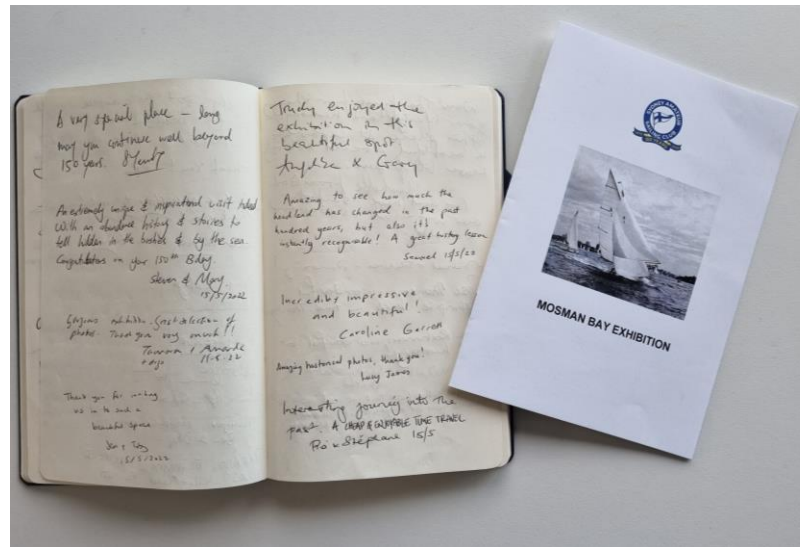 A very special place – long
may you continue well beyond
150 years.
An extremely unique & inspirational visit
With an abundance history & stories to
tell hidden in the bushes & by the sea.
Congratulations on your 150th Bday.
Steven & Mary
15/5/2022
Gorgeous exhibition. Great selection of
photos. Thank you very much!!
Tamara & Amanda
Thank you for inviting
us in to such a
beautiful space
15/5/2022
Truly enjoyed the
exhibition in this
beautiful spot
& Gary
Amazing to see how much the
headland has changed in the past
hundred years, but also it's
instantly recognisable! A great history lesson
Samuel
Incredibly impressive
and beautiful!
Caroline
Amazing historical photos, thank you!
Lucy Jones
Interesting journey into the
past. A CHEAP & ENJOYABLE TIME TRAVEL
Stéphane 15/5
SYDNEY AMATEUR
SAILING CLUB
MOSMAN BAY EXHIBITION